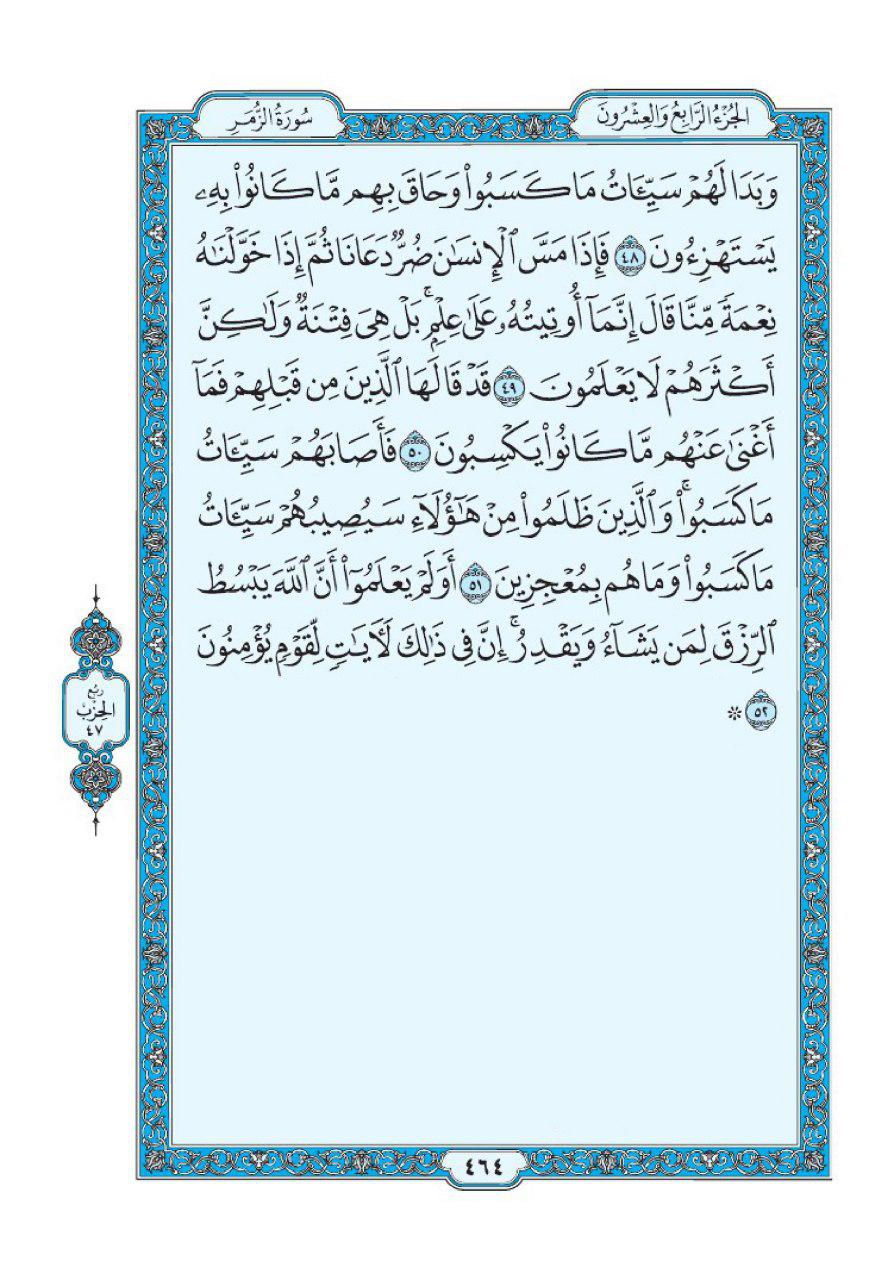 الجُزْءُ الرَّابِعُ وَالعِشْرُونَ
سُورَةُ الزُّمَرِ
وَبَدَا لَهُمْ سَيِّـَٔاتُ مَا كَسَبُوا۟ وَحَاقَ بِهِم مَّا كَانُوا۟ بِهِۦ
يَسْتَهْزِءُونَ ٤٨ فَإِذَا مَسَّ ٱلْإِنسَٰنَ ضُرٌّ دَعَانَا ثُمَّ إِذَا خَوَّلْنَٰهُ
نِعْمَةً مِّنَّا قَالَ إِنَّمَآ أُوتِيتُهُۥ عَلَىٰ عِلْمٍۭ ۚ بَلْ هِىَ فِتْنَةٌ وَلَٰكِنَّ
أَكْثَرَهُمْ لَا يَعْلَمُونَ ٤٩ قَدْ قَالَهَا ٱلَّذِينَ مِن قَبْلِهِمْ فَمَآ
أَغْنَىٰ عَنْهُم مَّا كَانُوا۟ يَكْسِبُونَ ٥٠ فَأَصَابَهُمْ سَيِّـَٔاتُ
مَا كَسَبُوا۟ ۚ وَٱلَّذِينَ ظَلَمُوا۟ مِنْ هَٰٓؤُلَآءِ سَيُصِيبُهُمْ سَيِّـَٔاتُ
مَا كَسَبُوا۟ وَمَا هُم بِمُعْجِزِينَ ٥١ أَوَلَمْ يَعْلَمُوٓا۟ أَنَّ ٱللَّهَ يَبْسُطُ
ٱلرِّزْقَ لِمَن يَشَآءُ وَيَقْدِرُ ۚ إِنَّ فِى ذَٰلِكَ لَءَايَٰتٍ لِّقَوْمٍ يُؤْمِنُونَ
٥٢ *
رُبْع
الحِزْبُ
٤٧
٤٦٤